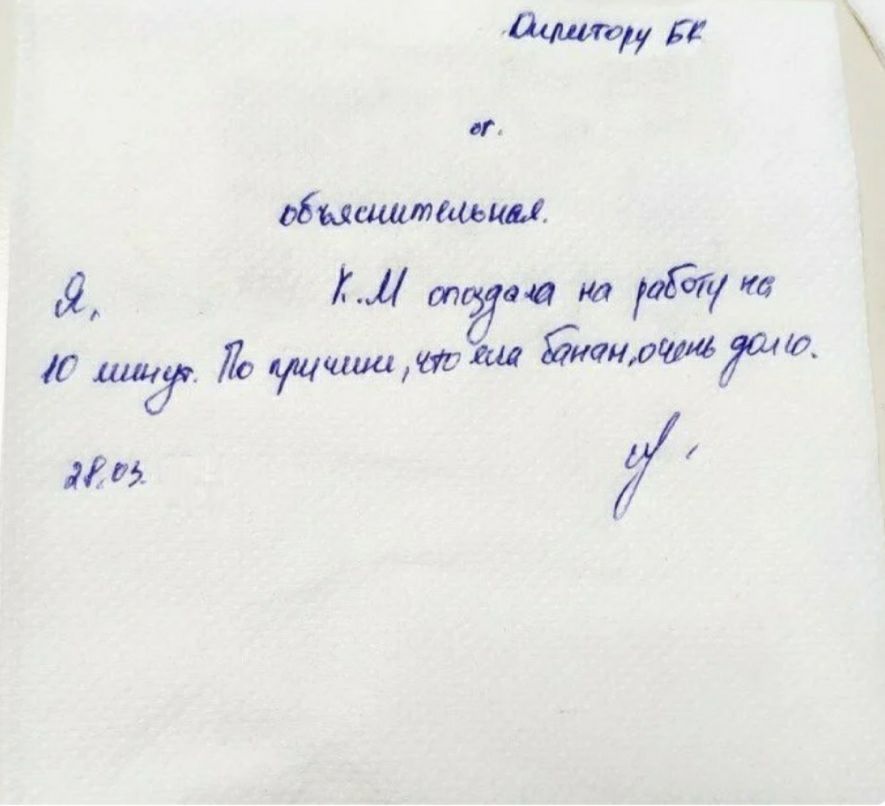 Директору БК
от.
объяснительная.
Я, К.М опоздала на работу на
10 минут. По причине, что ела банан, очень долго.
28.03.